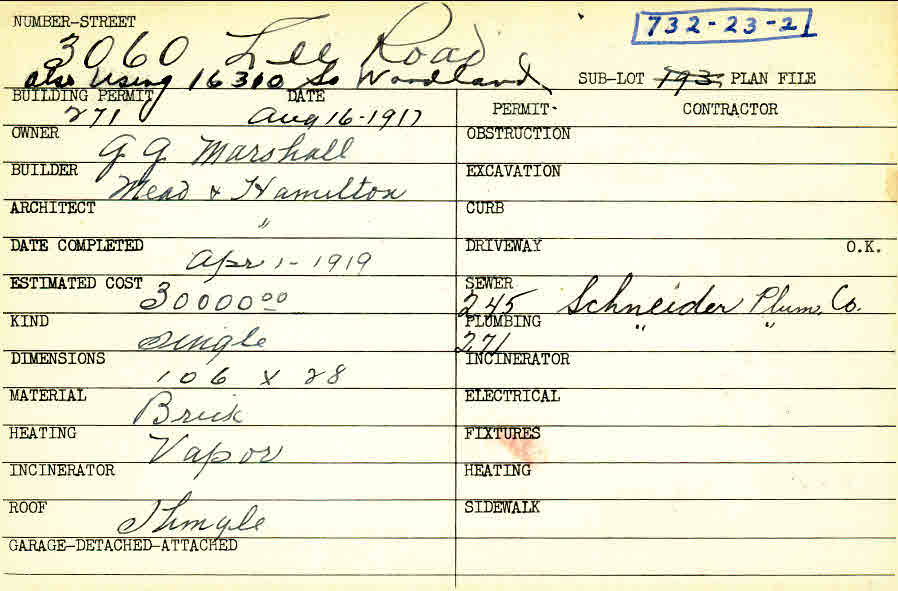 NUMBER-STREET
3060 Lee Road
732-23-2
also using 16310 So Woodland
SUB-LOT 193 PLAN FILE
BUILDING PERMIT DATE
271 Aug 16-1917
PERMIT CONTRACTOR
OWNER
G G Marshall
OBSTRUCTION
BUILDER
Mead & Hamilton
EXCAVATION
ARCHITECT
"
CURB
DATE COMPLETED
Apr 1-1919
DRIVEWAY O.K.
ESTIMATED COST
30000 00
SEWER
245 Schneider Plum. Co.
KIND
Single
PLUMBING
271 " "
DIMENSIONS
106 x 28
INCINERATOR
MATERIAL
Brick
ELECTRICAL
HEATING
Vapor
FIXTURES
INCINERATOR
HEATING
ROOF
Shingle
SIDEWALK
GARAGE-DETACHED-ATTACHED